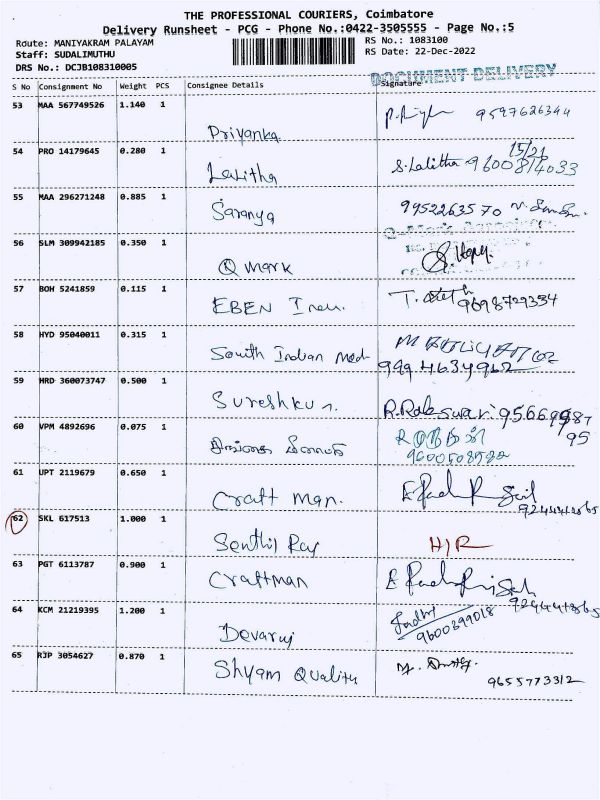 THE PROFESSIONAL COURIERS, Coimbatore
Delivery Runsheet - PCG - Phone No.:0422-3505555 - Page No.:5
Route: MANIYAKRAM PALAYAM RS No.: 1083100
Staff: SUDALIMUTHU RS Date: 22-Dec-2022
DRS No.: DCJB108310005 DOCUMENT DELIVERY
S No Consignment No Weight PCS Consignee Details Signature
53 MAA 567749526 1.140 1
Priyanka 9597626344
54 PRO 14179645 0.280 1 15/21
Lalitha S. Lalitha 9600814033
55 MAA 296271248 0.885 1
Saranya 9952263570
56 SLM 309942185 0.350 1
Q mark
57 BOH 5241859 0.115 1
EBEN 9698729334
58 HYD 95040011 0.315 1
South Indian Med 9994634962
59 HRD 360073747 0.500 1
Sureshku
60 VPM 4892696 0.075 1
61 UPT 2119679 0.650 1
Craft man.
62 SKL 617513 1.000 1
Senthil Raj H/R
63 PGT 6113787 0.900 1
Craftman
64 KCM 21219395 1.200 1
Devaraj 9600899018
65 RJP 3054627 0.870 1
Shyam Quality 9655773312